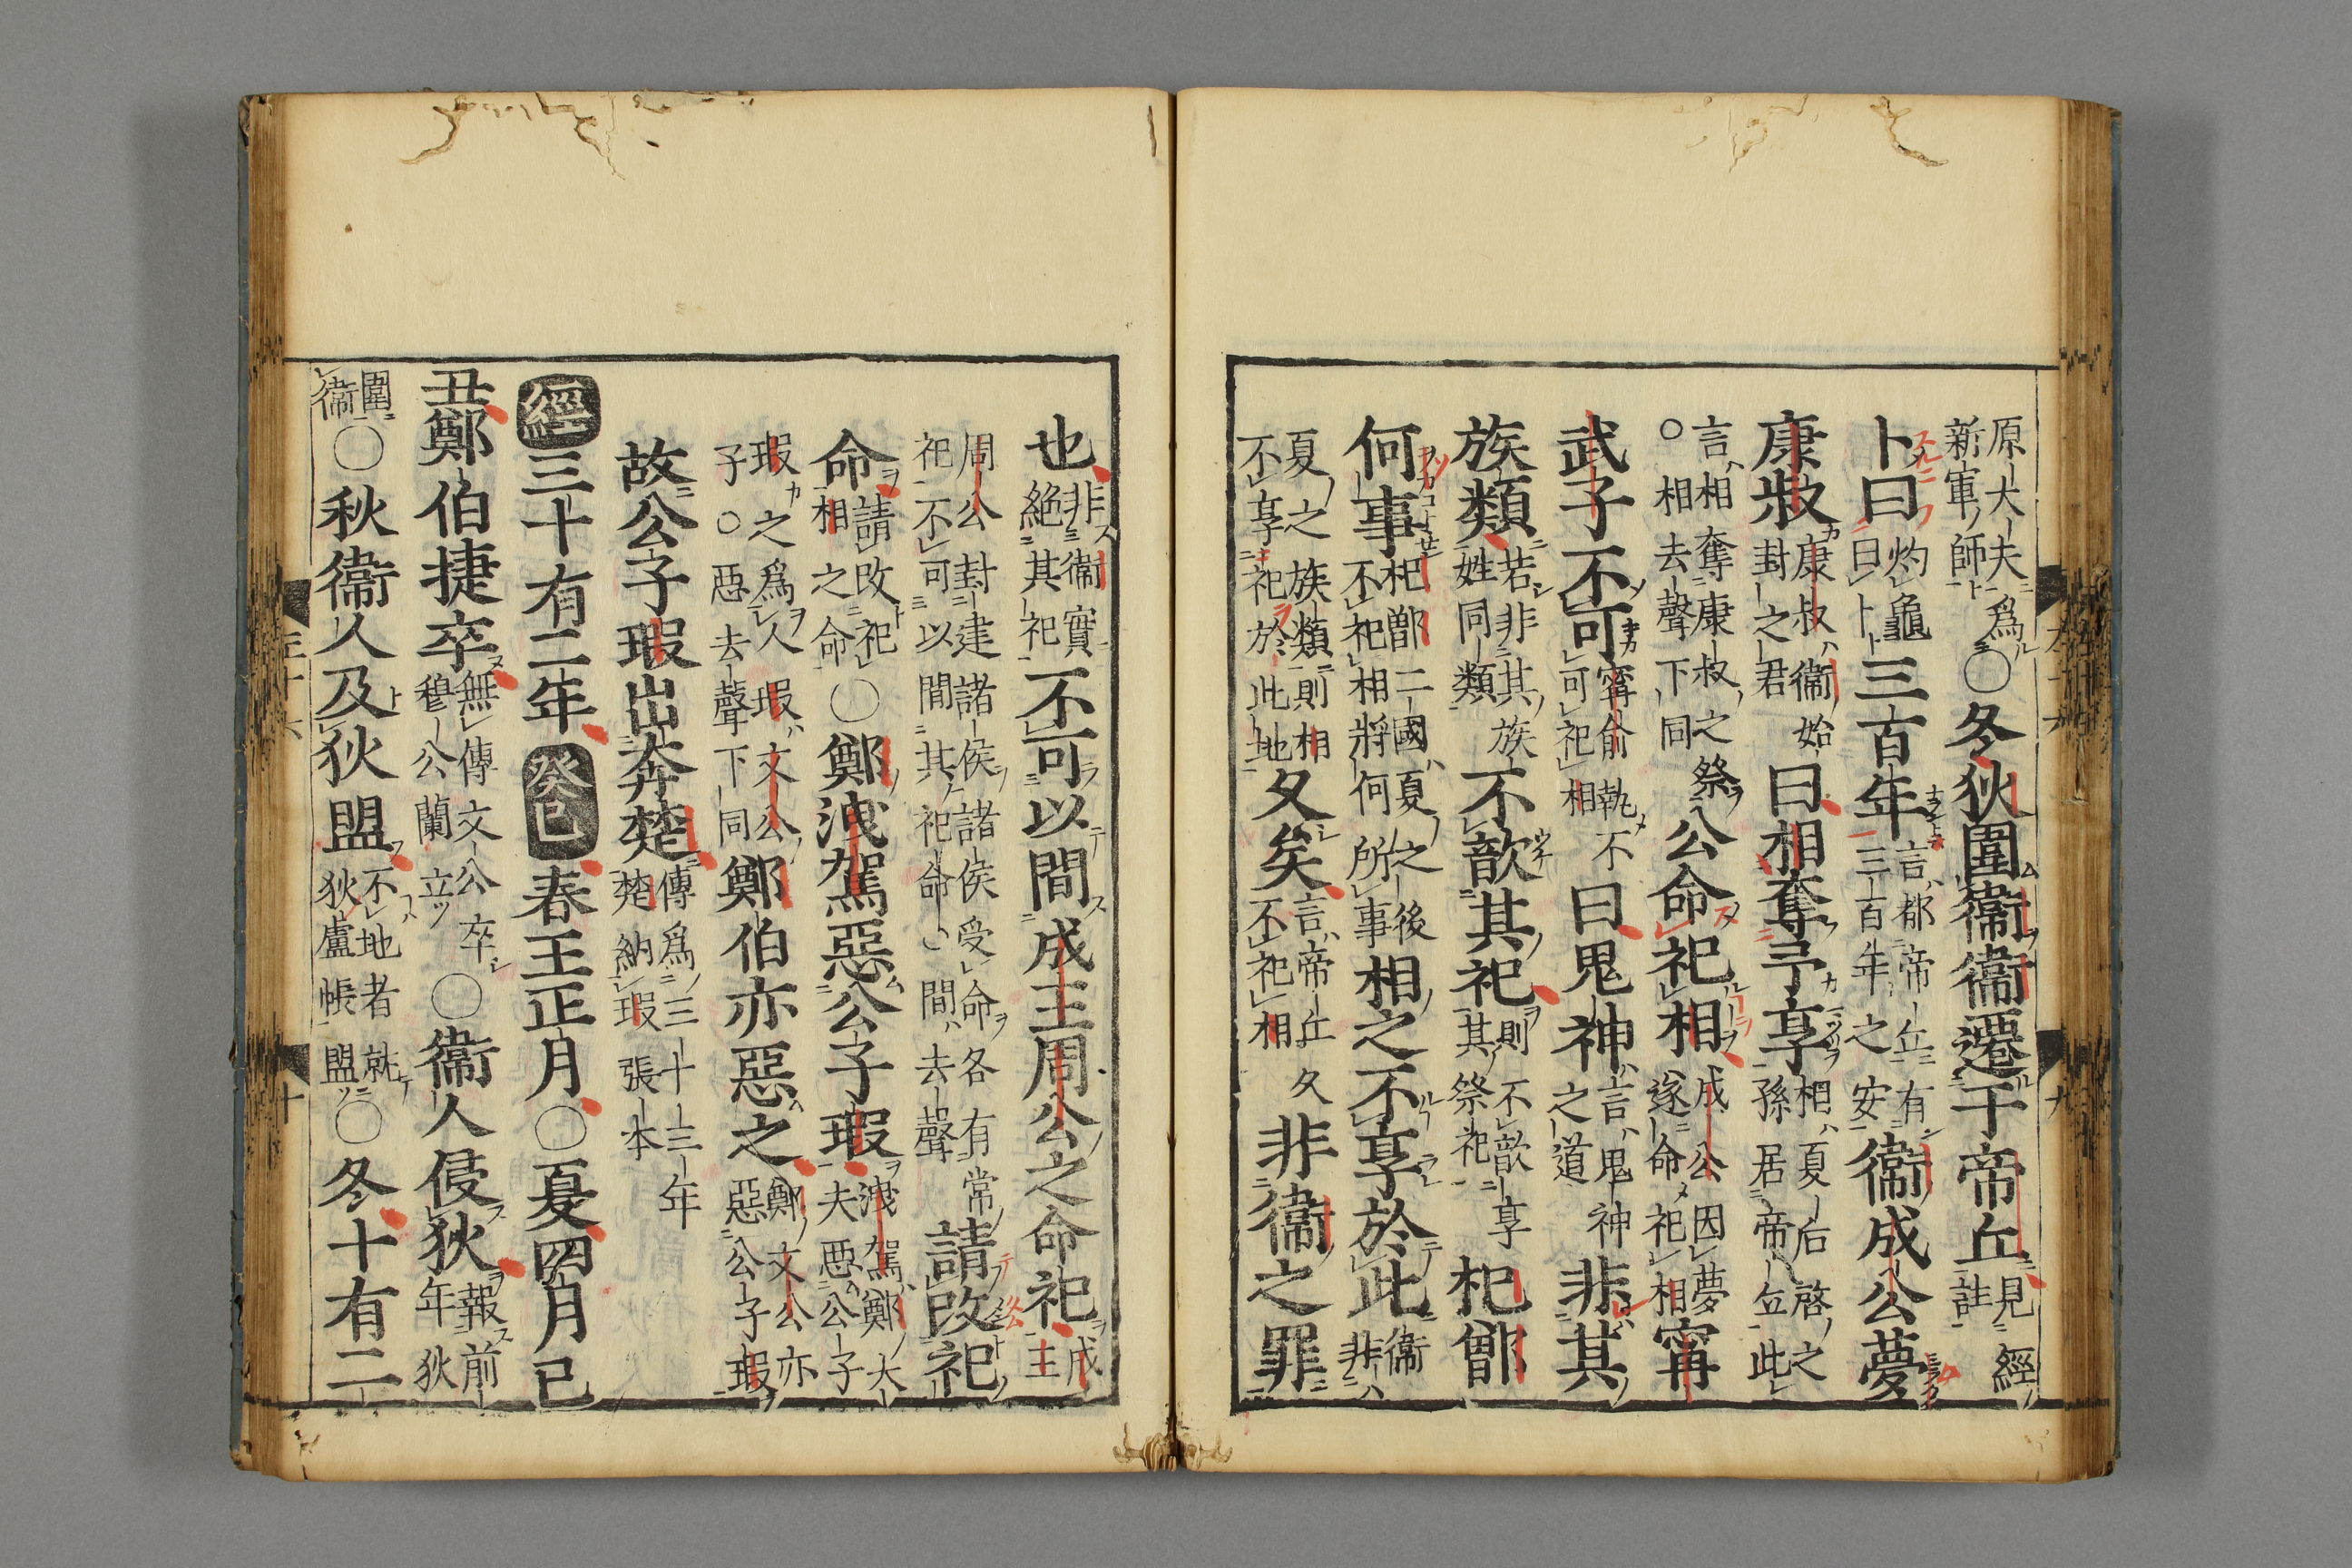 原大夫爲新軍師〇冬狄圍衞衞遷于帝丘見經註
卜曰灼龜曰卜三百年言都帝丘有三百年之安衞成公夢
康叔康叔衞始封之君曰相奪予享相夏后啓之孫居帝丘此
言相奪康叔之祭〇相去聲下同公命祀相成公因夢遂命祀相甯
武子不可甯俞執不可祀相曰鬼神言鬼神之道非其
族類若非其族姓同類不歆其祀則不歆享其祭祀杞鄫
何事杞鄫二國夏之後不祀相將何所事相之不享於此衞非
夏之族類則相不享祀於此地久矣言帝丘久不祀相非衞之罪
也非衞實絶其祀不可以間成王周公之命祀成王
周公封建諸侯諸侯受命各有常祀不可以間其祀命〇間去聲請改祀
命請改祀相之命〇鄭洩駕惡公子瑕洩駕鄭大夫惡公子
瑕之爲人瑕文公子〇惡去聲下同鄭伯亦惡之鄭文公亦惡公子瑕
故公子瑕出奔楚傳爲三十三年楚納瑕張本
經三十有二年癸巳春王正月〇夏四月己
丑鄭伯捷卒無傳文公卒穆公蘭立〇衞人侵狄報前年狄
圍衞〇秋衞人及狄盟不地者就狄廬帳盟〇冬十有二